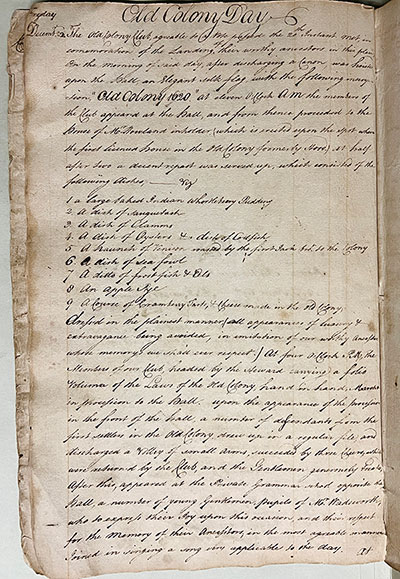 Old Colony Day
Decemr. 22 The Old Colony Club, agreable to a Vote passed the 20th Instant met, in
comemoration of the Landing their worthy ancestors in this place
On the morning of said day, after discharging a Canon, was hoisted
upon the Hall, an Elegant silk flag with the following inscrip-
tion, "Old Colony 1620" at eleven o Clock A.M. the members of
the Club appeared at the Hall, and from thence proceeded to the
House of Mr Howland inholder (which is erected upon the spot where
the first licensed house in the Old Colony formerly stood) At half
after two a decent repast was served up, which consisted of the
following dishes, Viz
1 a large baked Indian Whortleberry Pudding
2 A dish of Sauquetash
3 A dish of Clamms
4 A dish of Oysters & a dish of Codfish
5 A Haunch of Venison roasted by the first Jack bro't to the Colony
6 A dish of sea fowl
7 A ditto of frost fish & Eels
8 An apple Pye
9 A Course of Cranberry Tarts, & Cheese made in the Old Colony,
dress'd in the plainest manner (all appearances of luxury &
extravagance being avoided, in imitation of our worthy Ancestors
whose memory we shall ever respect) At four o Clock P.M. the
Members of our Club, headed by the Steward carrying a folio
Volumn of the Laws of the Old Colony, hand in hand, Marched
in procession to the Hall. upon the appearance of the procession
in the front of the hall, a number of descendants from the
first settlers in the Old Colony drew up in a regular file, and
discharged a Volley of small arms, succeeded by three Cheers, which
were returned by the Club, and the Gentlemen generously treated
After this, appeared at the Private Grammar school opposite the
Hall, a number of young Gentlemen, pupils of Mr Wadsworth,
who to express their Joy upon this occasion, and their respect
for the Memory of their Ancestors, in the most agreable manner
Joined in singing a song very applicable to the day. At